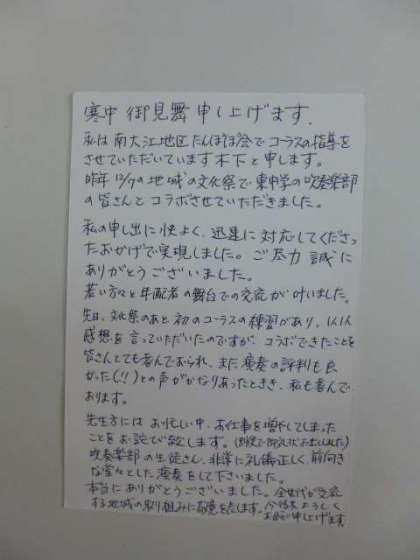 寒中御見舞申し上げます.
私は南大江地区たんぽぽ会でコーラスの指導を
させていただいています木下と申します。
昨年12/7の地域の文化祭で東中学の吹奏楽部
の皆さんとコラボさせていただきました。
私の申し出に快よく、迅速に対応してくださっ
たおかげで実現しました。ご尽力誠に
ありがとうございました。
若い方々と年配者の舞台での交流が叶いました。
先日、文化祭のあと初のコーラスの練習があり、1人1人
感想を言っていただいたのですが、コラボできたことを
皆さんとても喜んでおられ、また演奏の評判も良
かった(!!)との声がかなりあったときき、私も喜んで
おります。
先生方にはお忙しい中、お仕事を増やしてしまった
ことをお詫び致します。
吹奏楽部の生徒さん、非常に礼儀正しく、前向き
な堂々とした演奏をして下さいました。
本当にありがとうございました。全世代が交流
する地域の取り組みに敬意を表します。今後もよろしく
お願い申し上げます